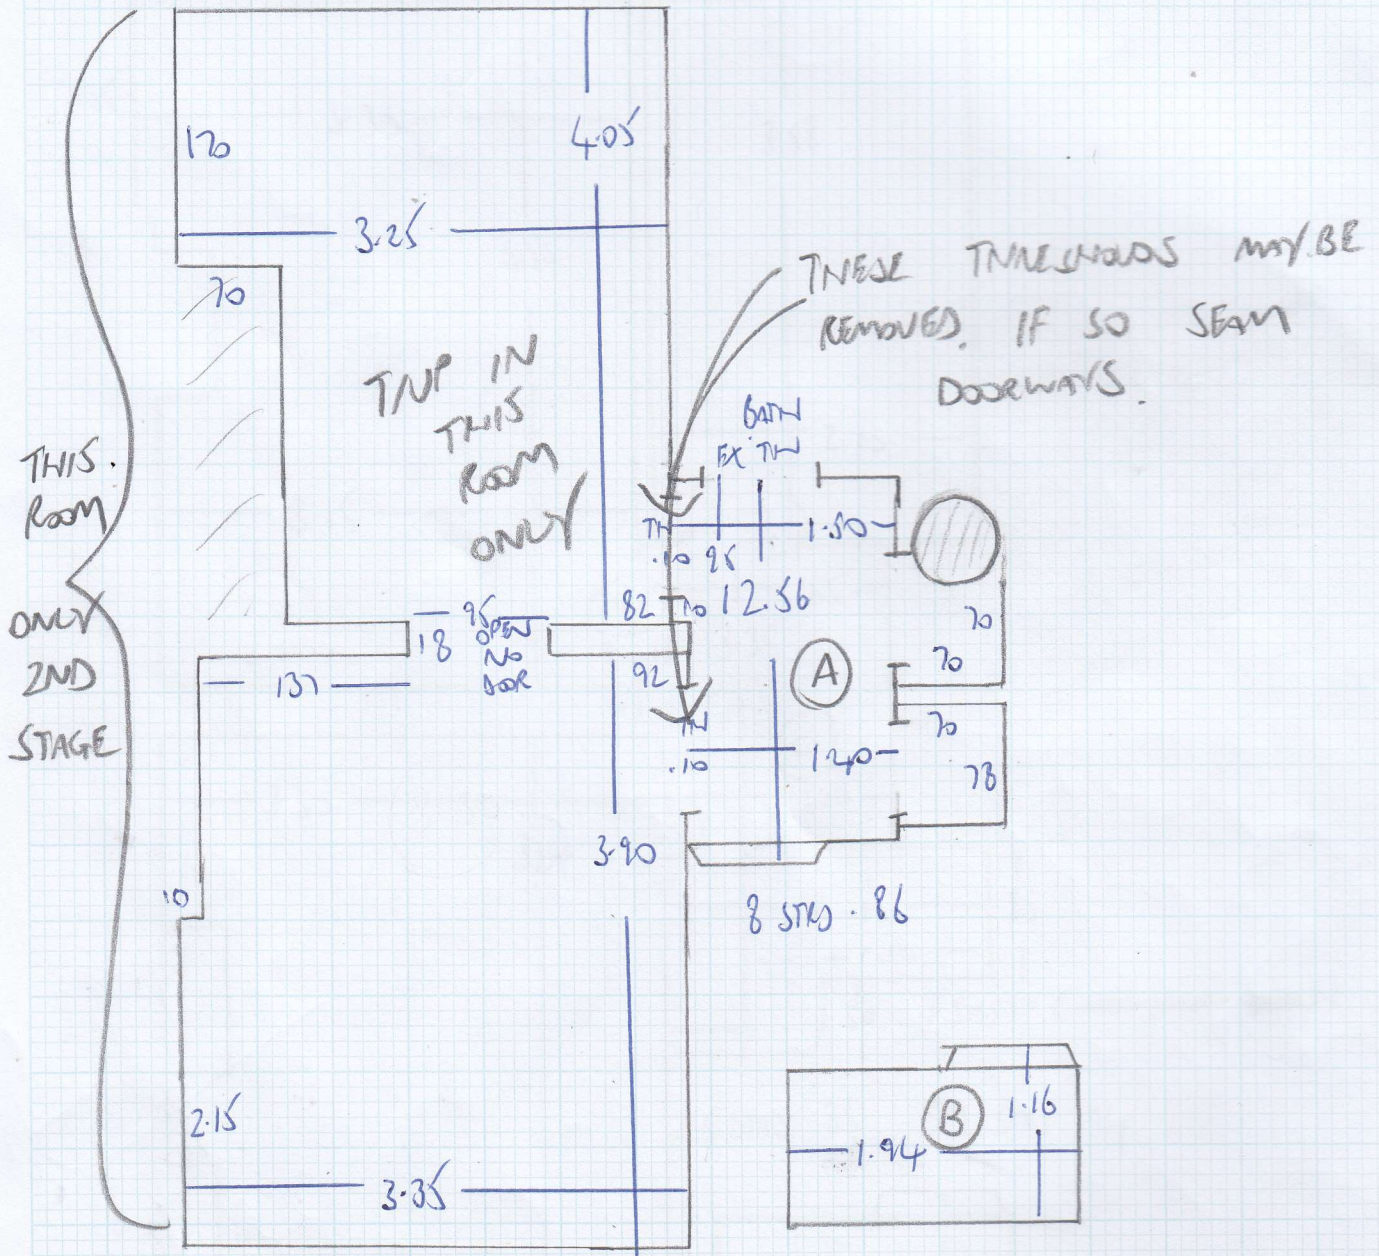 120
4.05
3.25
70
THESE THRESHOLDS MAY BE
REMOVED. IF SO SEAM
DOORWAYS.
T/UP IN
THIS
ROOM
ONLY
THIS
ROOM
ONLY
2ND
STAGE
BATH
EX TH
TH
.10 95
1.50
12.56
82
10
95
18 OPEN
NO
DOOR
137
92
A
70
70
70
78
TH
.10
1.40
3.90
10
8 STRS . 86
2.15
3.35
B
1.16
1.94